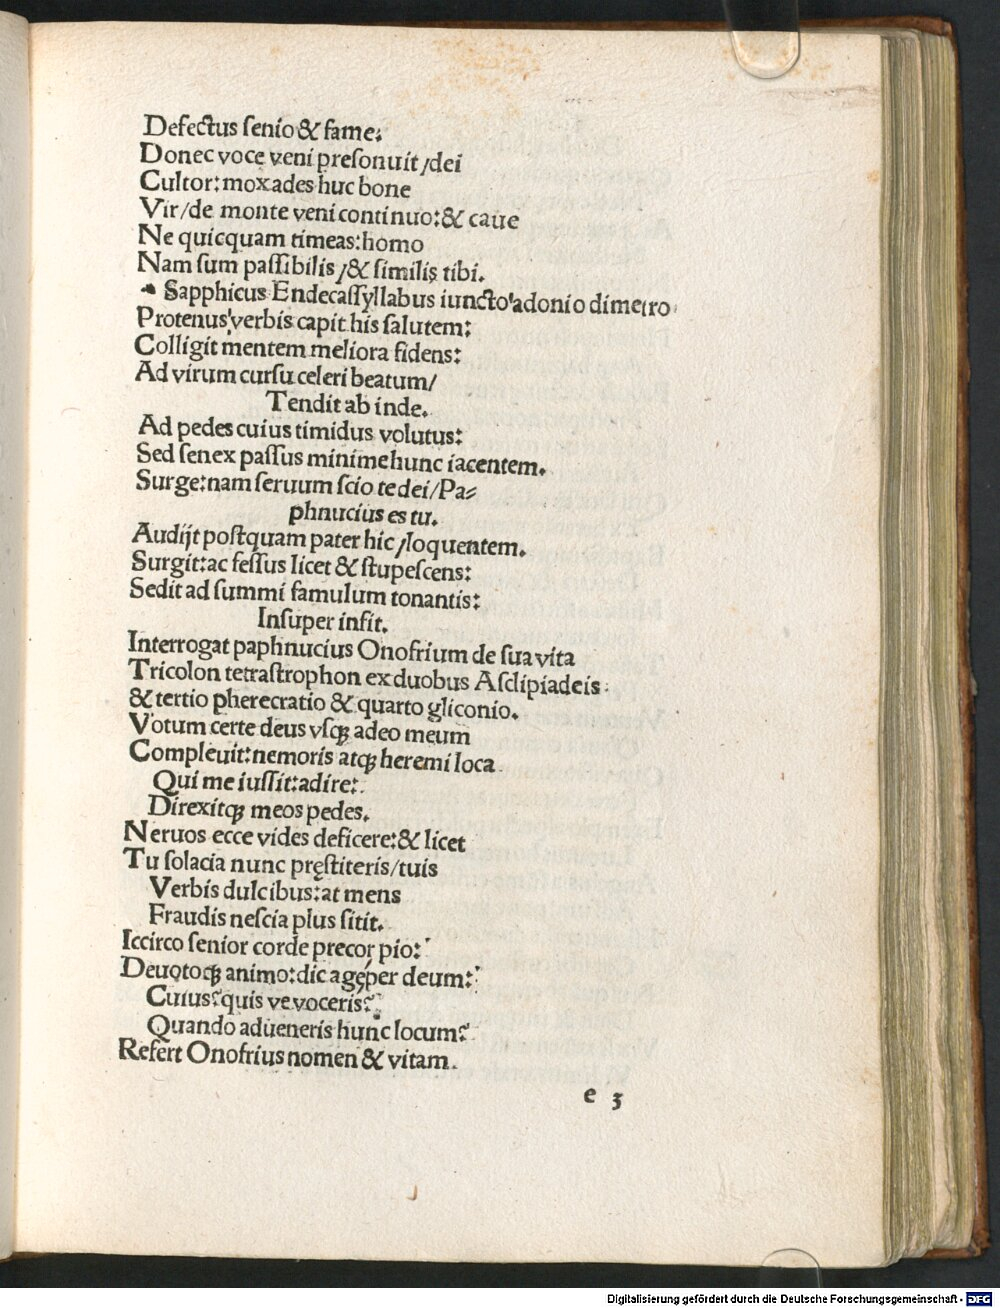 Defectus ſenio & fame:
Donec voce veni preſonuit /dei
Cultor: mox ades huc bone
Vir/de monte veni continuo: & caue
Ne quicquam timeas: homo
Nam ſum paſſibilis /& ſimilis tibi.
Sapphicus Endecaſſyllabus iuncto adonio dimetro
Protenus verbis capit his ſalutem:
Colligit mentem meliora fidens:
Ad virum curſu celeri beatum/
Tendit ab inde.
Ad pedes cuius timidus volutus:
Sed ſenex paſſus minime hunc iacentem.
Surge: nam ſeruum ſcio te dei/Pa⸗
phnucius es tu.
Audijt poſtquam pater hic/loquentem.
Surgit: ac feſſus licet & ſtupeſcens:
Sedit ad ſummi famulum tonantis:
Inſuper infit.
Interrogat paphnucius Onofrium de ſua vita
Tricolon tetraſtrophon ex duobus Aſclipiadeis:
& tertio pherecratio & quarto gliconio.
Votum certe deus vſqꝫ adeo meum
Compleuit: nemoris atqꝫ heremi loca
Qui me iuſſit: adire:
Direxitqꝫ meos pedes.
Neruos ecce vides deficere: & licet
Tu ſolacia nunc pręſtiteris/tuis
Verbis dulcibus: at mens
Fraudis neſcia plus ſitit.
Iccirco ſenior corde precor pio:
Deuotoqꝫ animo: dic age per deum:
Cuius? quis ve voceris?
Quando adueneris hunc locum?
Refert Onofrius nomen & vitam.
e 3
Digitalisierung gefördert durch die Deutsche Forschungsgemeinschaft - DFG